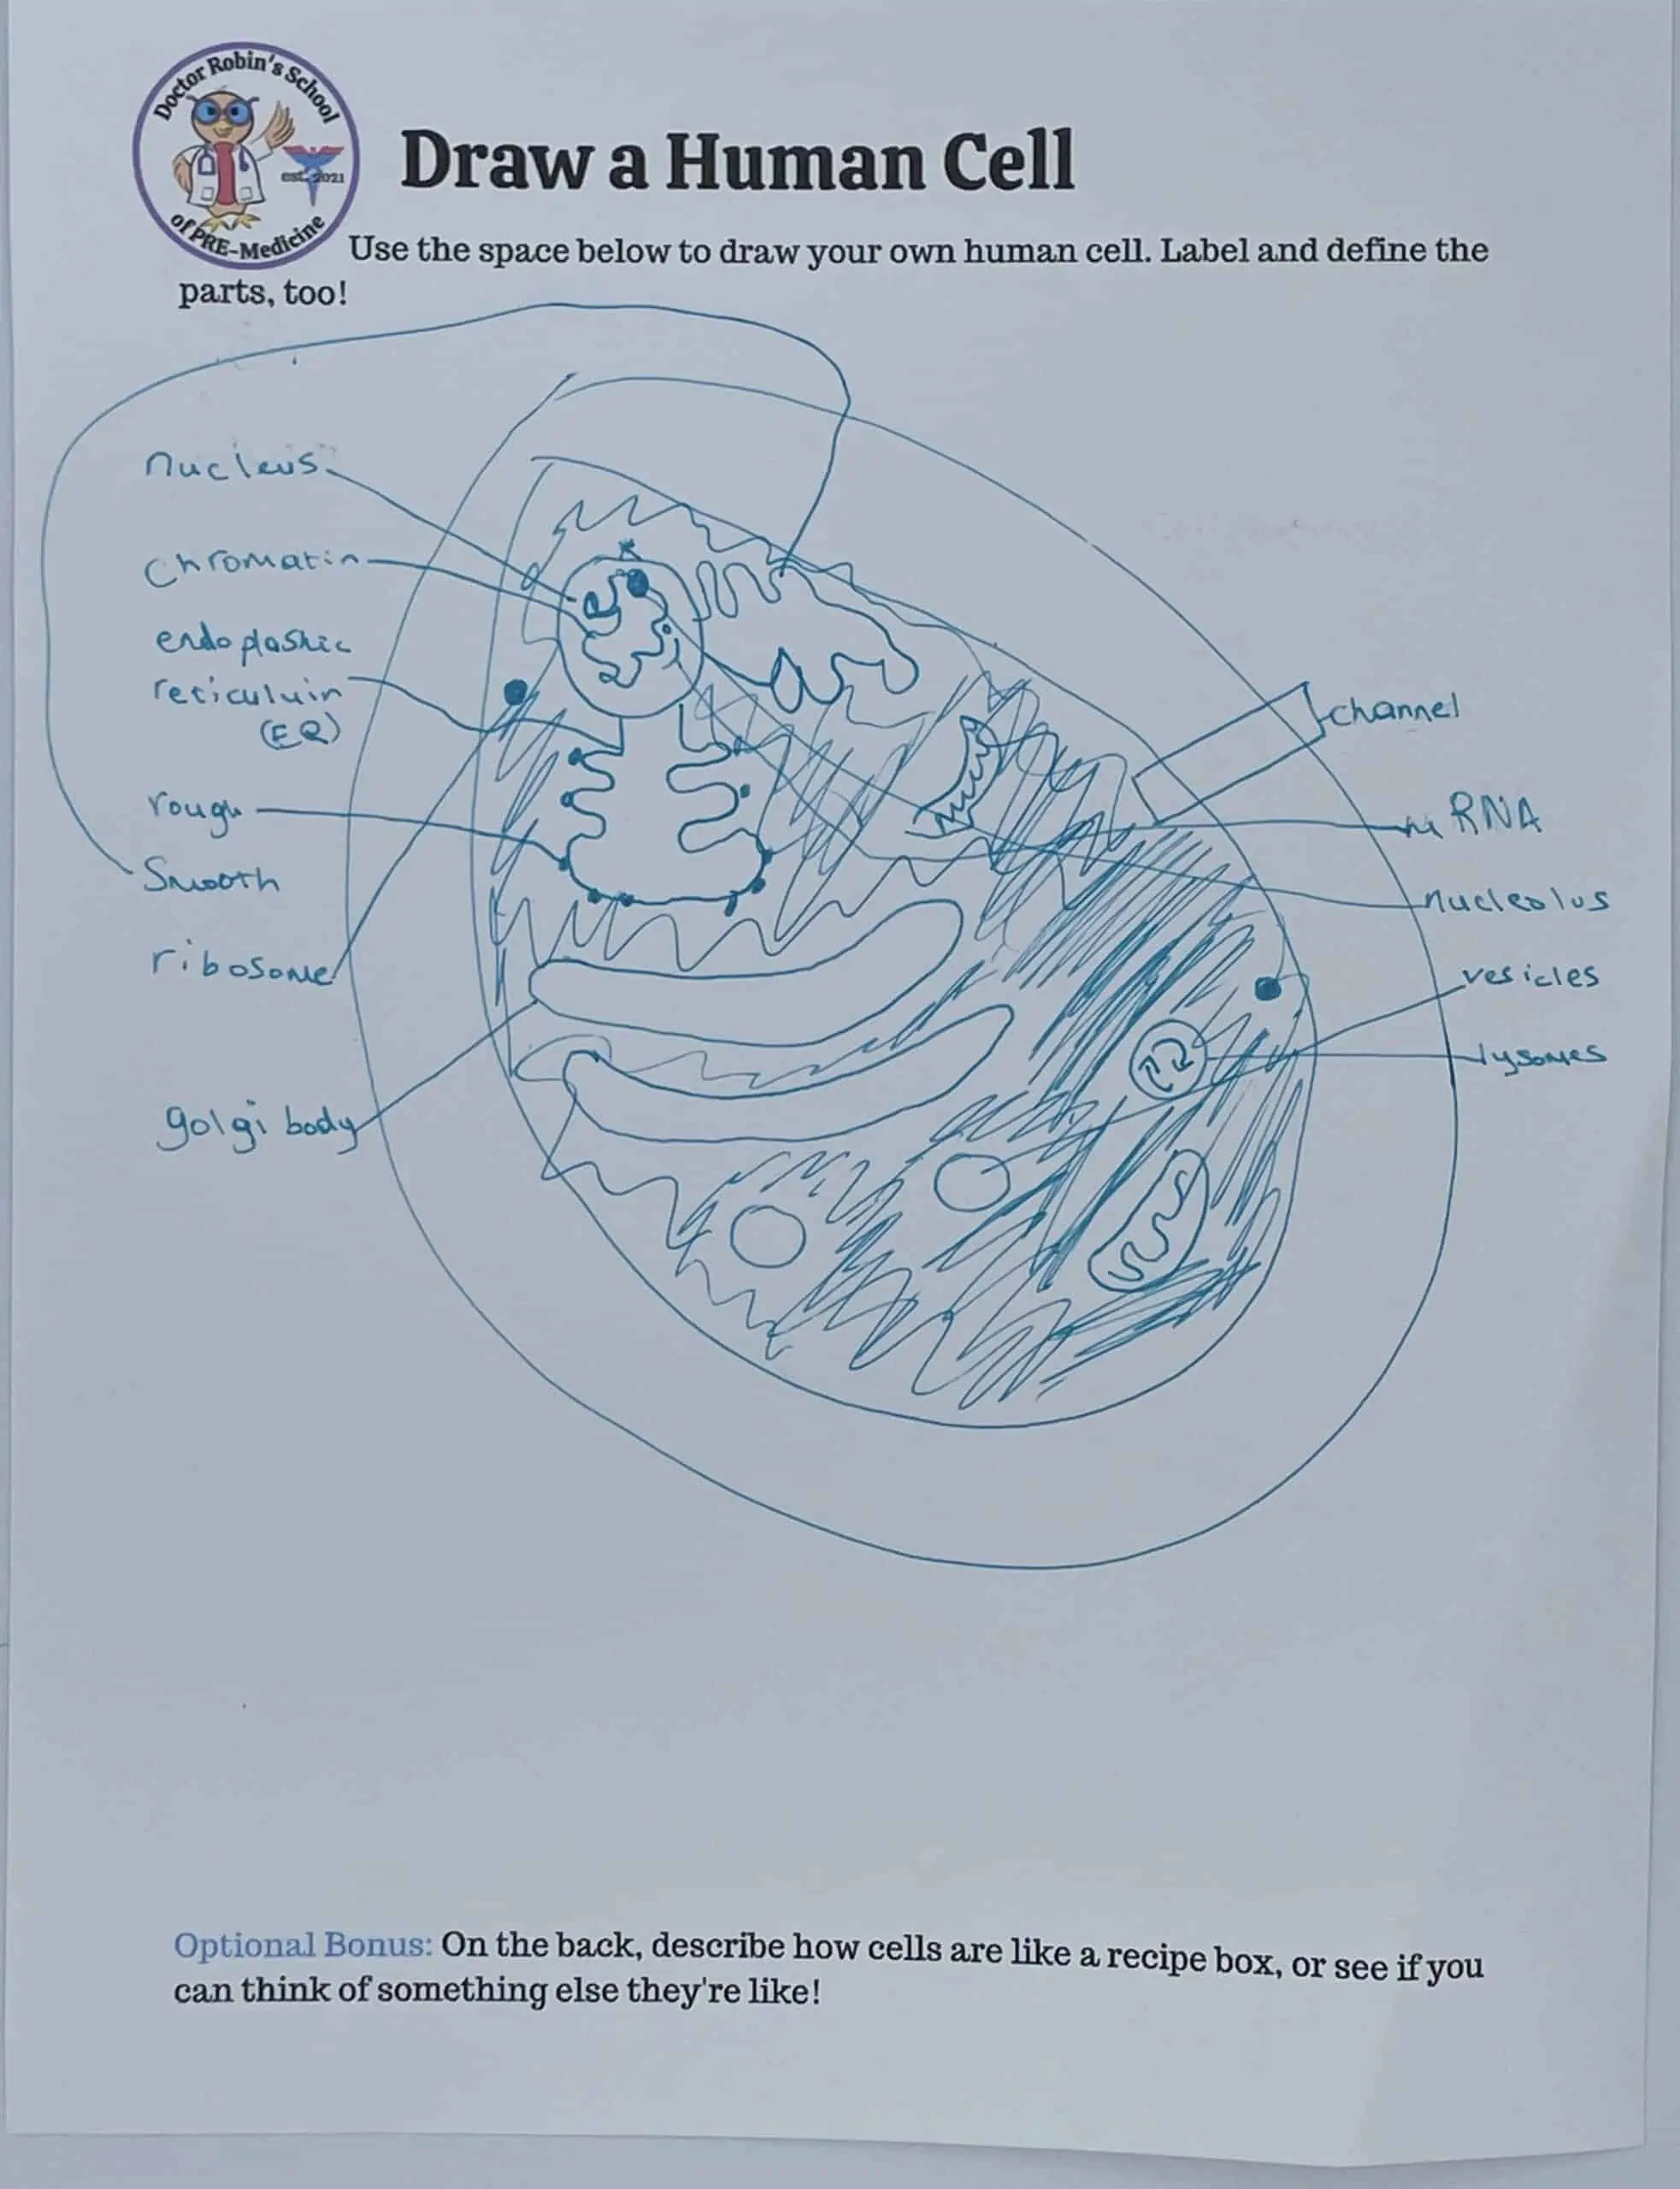 Doctor Robin's School
est. 2021
of PRE-Medicine
Draw a Human Cell
Use the space below to draw your own human cell. Label and define the
parts, too!
nucleus
chromatin
endoplastic
reticuluin
(ER)
rough
Smooth
ribosome
golgi body
channel
mRNA
nucleolus
vesicles
lysomes
Optional Bonus: On the back, describe how cells are like a recipe box, or see if you
can think of something else they're like!